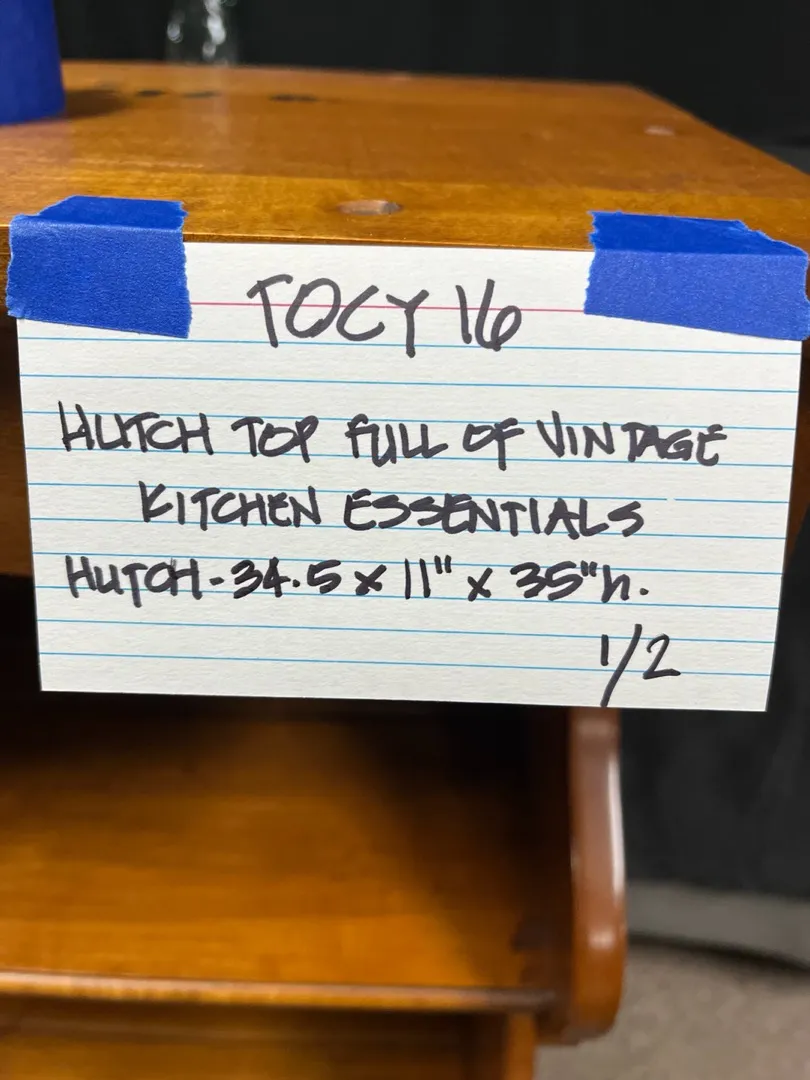 TOCY 16
HUTCH TOP FULL OF VINTAGE
KITCHEN ESSENTIALS
HUTCH - 34.5 x 11" x 35"h.
1/2